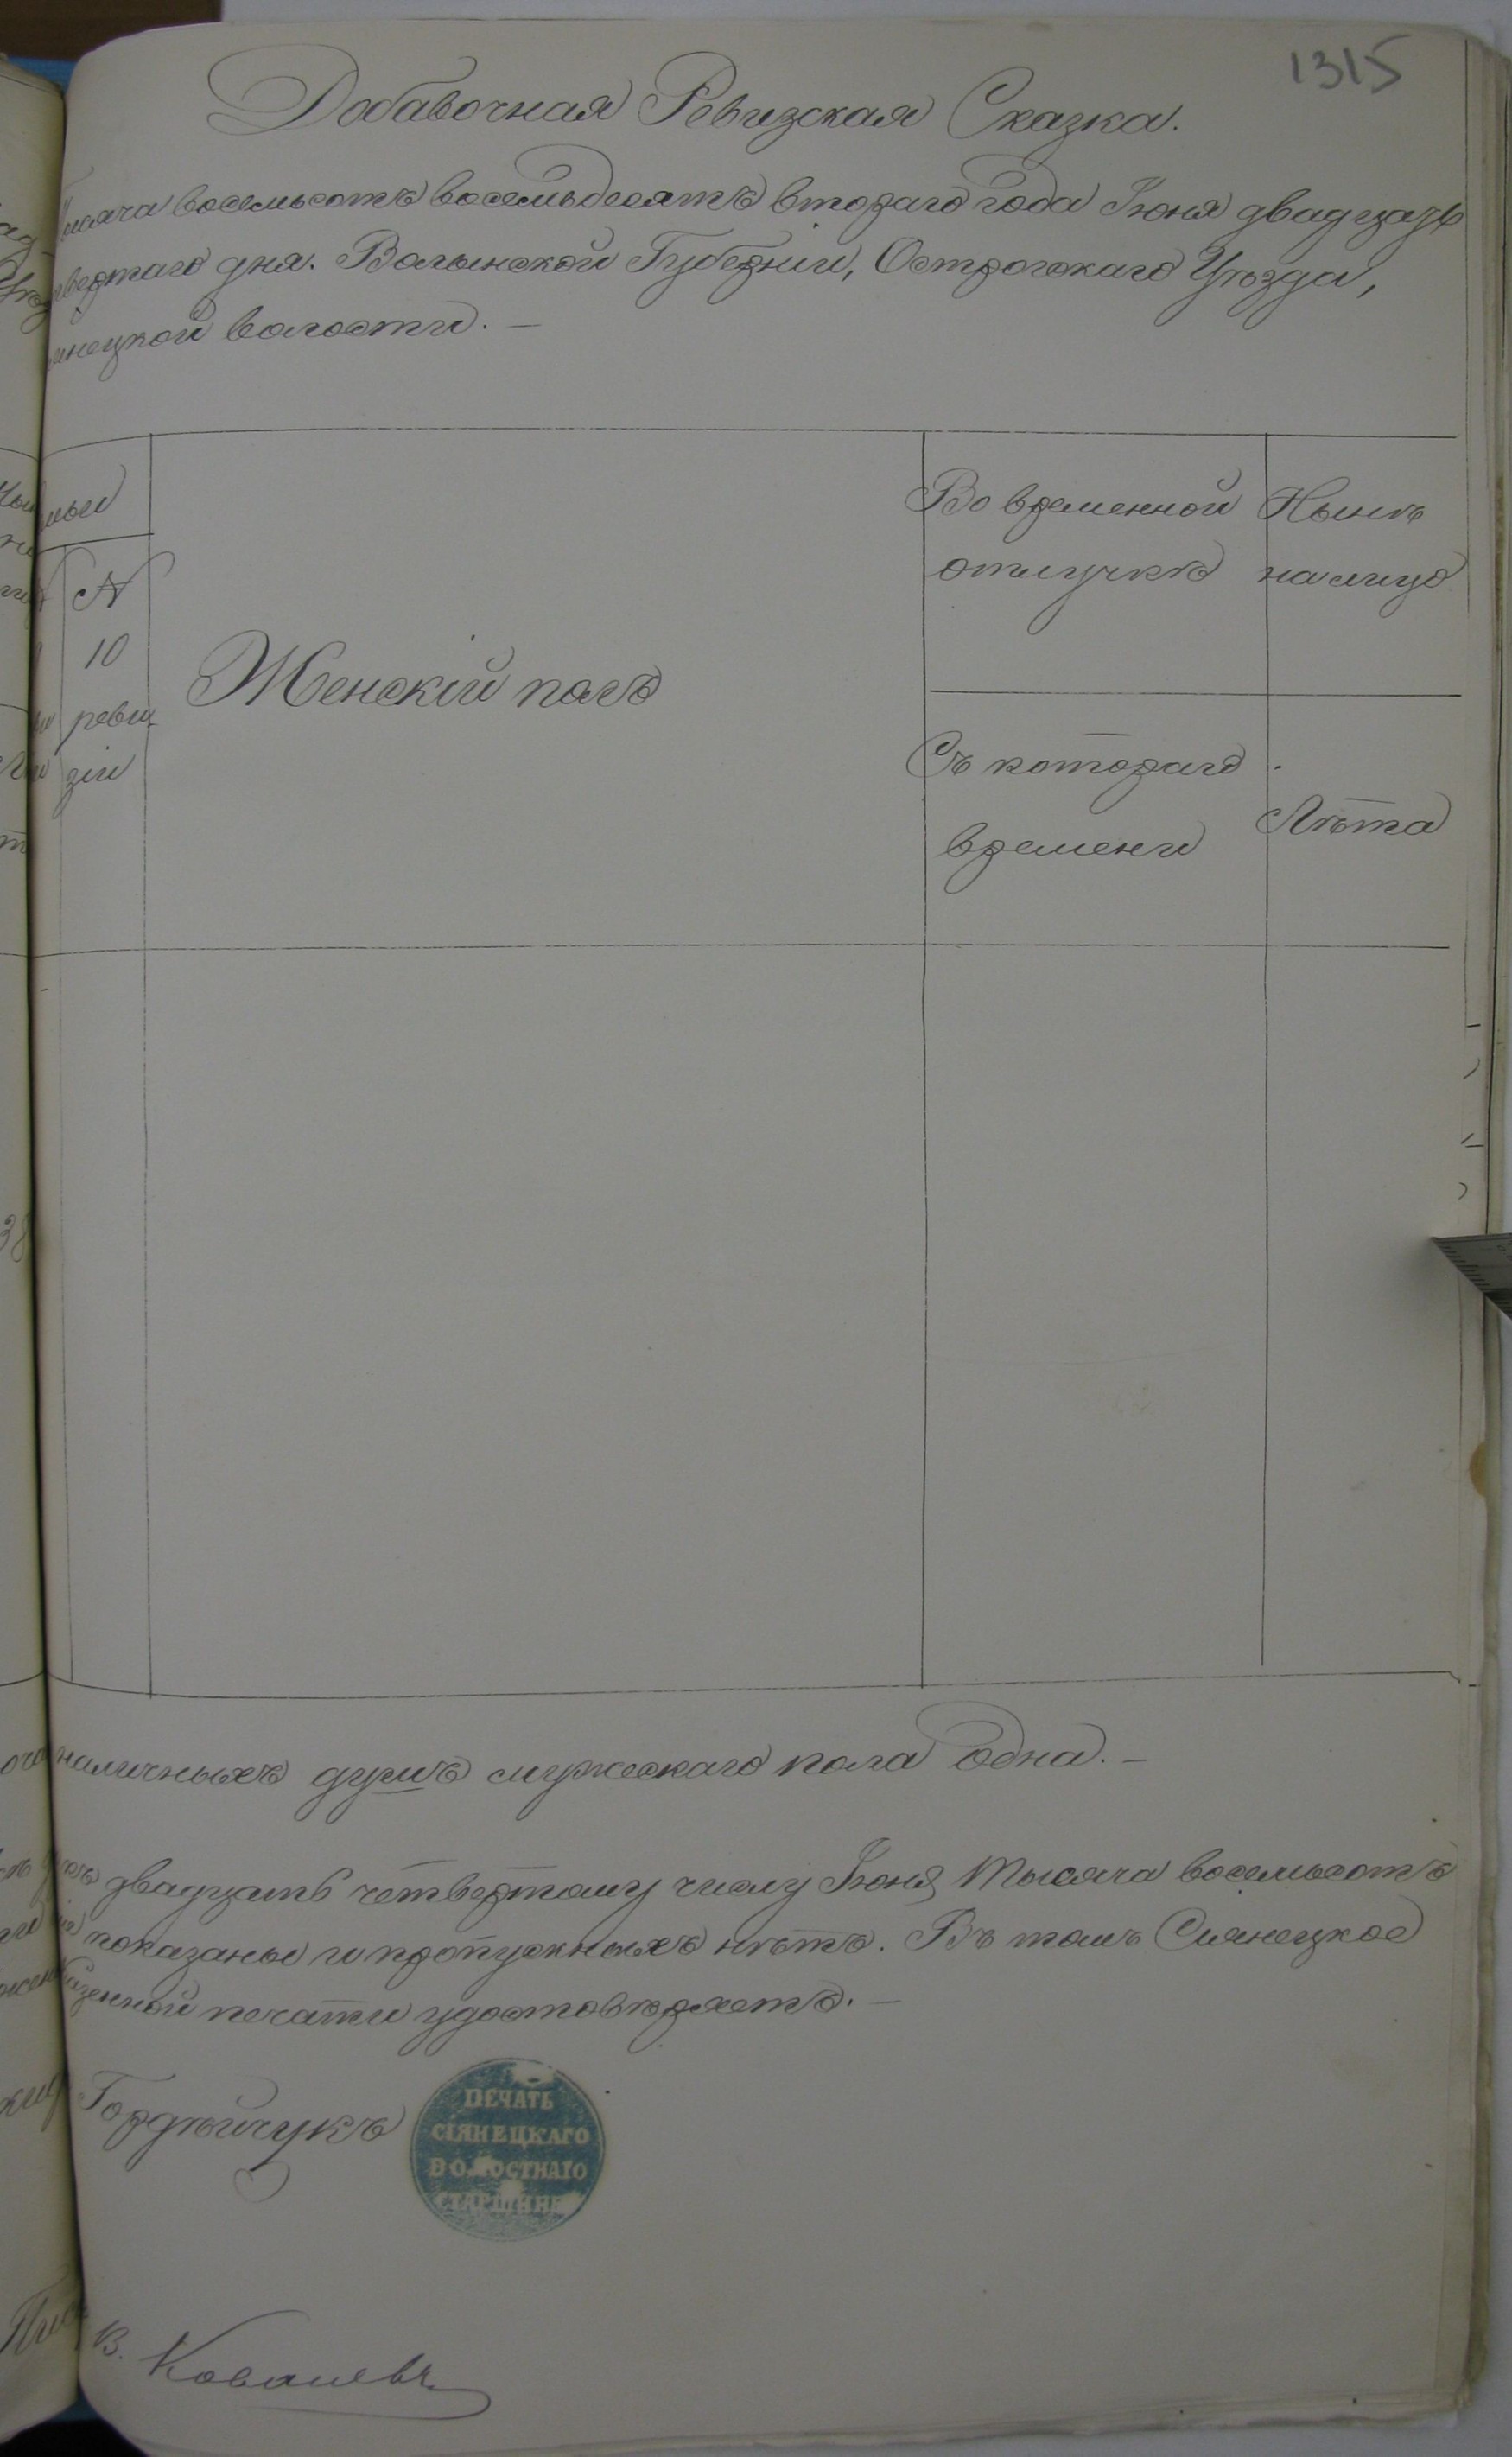 1315
Добавочная Ревизская Сказка.
тысяча восемьсотъ восемьдесятъ втораго года Іюня двадцать
четвертаго дня. Волынской Губерніи, Острогскаго Уѣзда,
нецкой волости. —
ный
N
10
реви
зіи
Женскій полъ
Во временной
отлучкѣ
Нынѣ
на лицо
Съ котораго
времени
Лѣта
наличныхъ душъ мужескаго пола одна. —
двадцать четвертому числу Іюня тысяча восемьсотъ
показаны и пропускныхъ нѣтъ. Въ томъ Сіянецкое
казенной печати удостовѣряетъ. —
Гордѣйчукъ
ПЕЧАТЬ
СІЯНЕЦКАГО
ВОЛОСТНАГО
СТАРШИНЫ
В. Ковалевъ